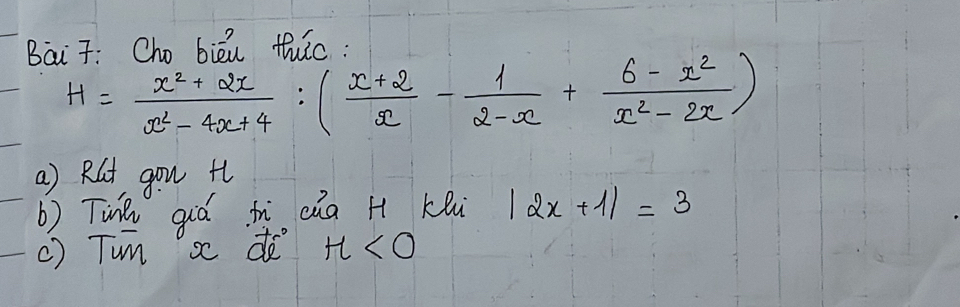 Bài 7: Cho biểu thức:
H = \frac{x^2 + 2x}{x^2 - 4x + 4} : \left( \frac{x+2}{x} - \frac{1}{2-x} + \frac{6 - x^2}{x^2 - 2x} \right)
a) Rút gọn H
b) Tính giá trị của H khi |2x + 1| = 3
c) Tìm x để H < 0